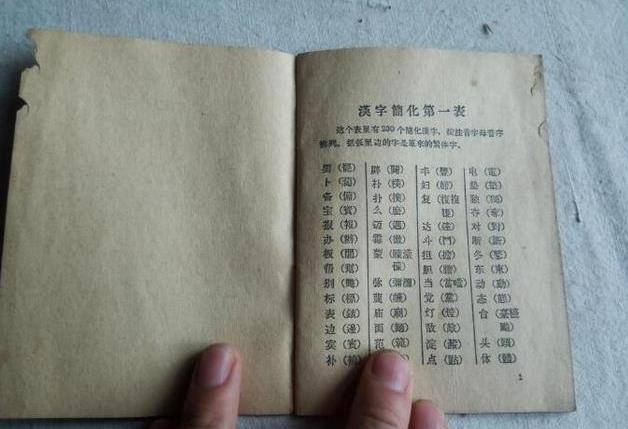 漢字簡化第一表
这个表里有230个簡化漢字,按注音字母音序
排列。括弧里边的字是原来的繁体字。
罢(罷)
卜(蔔)
备(備)
宝(寶)
报(報)
办(辦)
板(闆)
帮(幫)
别(彆)
标(標)
表(錶)
边(邊)
宾(賓)
补(補)
辟(闢)
朴(樸)
扑(撲)
么(麽)
迈(邁)
霉(黴)
蒙(矇濛
懞)
弥(彌瀰)
蔑(衊)
庙(廟)
面(麵)
范(範)
丰(豐)
妇(婦)
复(復複
覆)
达(達)
斗(鬥)
担(擔)
胆(膽)
当(當噹)
党(黨)
灯(燈)
敌(敵)
淀(澱)
点(點)
电(電)
垫(墊)
独(獨)
夺(奪)
对(對)
断(斷)
冬(鼕)
东(東)
动(動)
态(態)
台(臺檯
颱)
头(頭)
体(體)
1